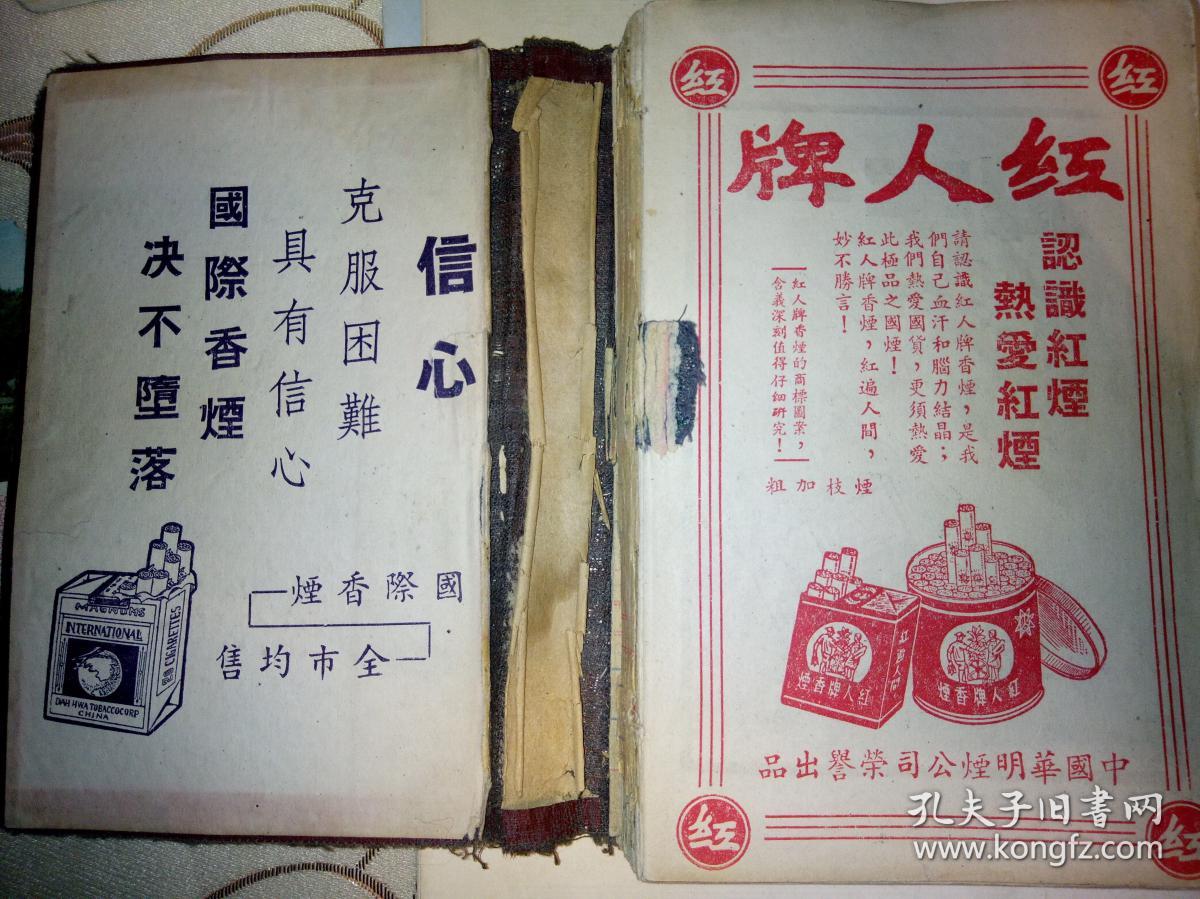 信心
克服困難
具有信心
國際香煙
決不墮落
國際香煙
全市均售
MAGNUMS
INTERNATIONAL
20 CIGARETTES
DAH HWA TOBACCO CORP
CHINA
紅
紅
紅人牌
認識紅煙
熱愛紅煙
請認識紅人牌香煙，是我
們自己血汗和腦力結晶；
我們熱愛國貨，更須熱愛
此極品之國煙！
紅人牌香煙，紅遍人間，
妙不勝言！
紅人牌香煙的商標圖案，
含義深刻值得仔細研究！
煙枝加粗
紅人牌香煙
紅人牌香煙
中國華明煙公司榮譽出品
紅
紅
孔夫子旧书网
www.kongfz.com